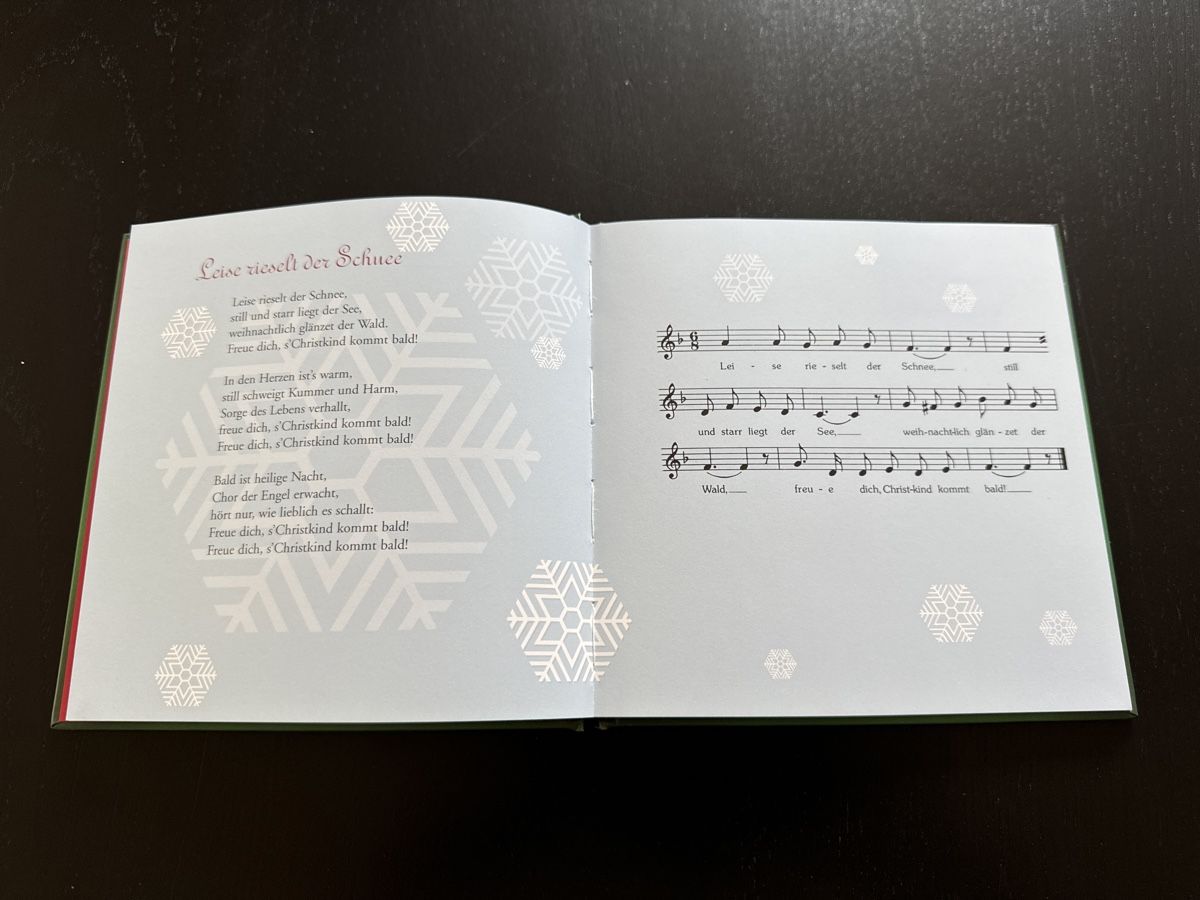 Leise rieselt der Schnee
Leise rieselt der Schnee,
still und starr liegt der See,
weihnachtlich glänzet der Wald.
Freue dich, s'Christkind kommt bald!
In den Herzen ist's warm,
still schweigt Kummer und Harm,
Sorge des Lebens verhallt,
freue dich, s'Christkind kommt bald!
Freue dich, s'Christkind kommt bald!
Bald ist heilige Nacht,
Chor der Engel erwacht,
hört nur, wie lieblich es schallt:
Freue dich, s'Christkind kommt bald!
Freue dich, s'Christkind kommt bald!
6
8
Lei - se rie - selt der Schnee,__ still
und starr liegt der See,__ weih-nacht-lich glän - zet der
Wald,__ freu - e dich, Christ-kind kommt bald!__